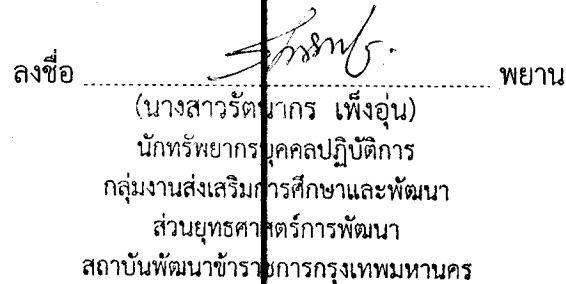 ลงชื่อ ........................................ พยาน
(นางสาวรัตนากร เพ็งอุ่น)
นักทรัพยากรบุคคลปฏิบัติการ
กลุ่มงานส่งเสริมการศึกษาและพัฒนา
ส่วนยุทธศาสตร์การพัฒนา
สถาบันพัฒนาข้าราชการกรุงเทพมหานคร